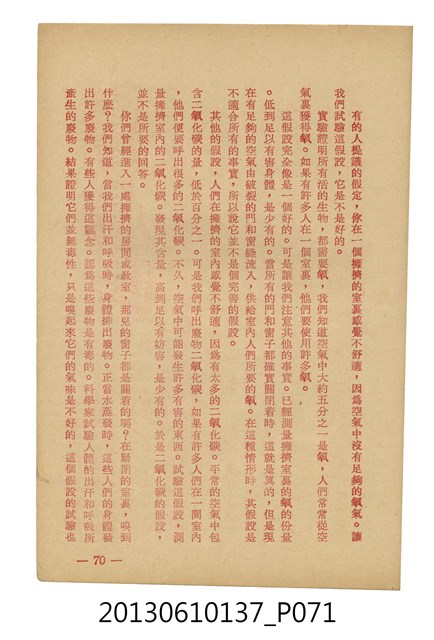 有的人提議的假定，你在一個擁擠的室裏感覺不舒適，因爲空氣中沒有足夠的氧氣。讓
我們試驗這假設，它是不是好的。
實驗證明所有活的生物，都需要氧，我們知道空氣中大約五分之一是氧，人們常常從空
氣裏獲得氧。如果有許多人在一個室裏，他們要使用許多氧。
這假設完全像是一個好的。可是讓我們注意其他的事實。已經測量擁擠室裏的氧的份量
。低到足以有害身體，是少有的。當所有的門和窗子都確實關閉着時，這就是眞的，但是現
在有足夠的空氣由破裂的門和窗縫流入，供給室內人們所要的氧。在這種情形時，其假設是
不適合所有的事實，所以說它並不是個完善的假設。
其他的假設，人們在擁擠的室內感覺不舒適，因爲有太多的二氧化碳。平常的空氣中包
含二氧化碳的量，低於百分之一。可是我們呼出廢物二氧化碳，如果有許多人們在一間室內
，他們便要呼出很多的二氧化碳。不久，空氣中可能發生許多有害的東西。試驗這假設，測
量擁擠室內的二氧化碳。發現其含量，高到足以有妨害，是少有的。於是二氧化碳的假設，
並不是所要的回答。
你們曾經進入一處擁擠的房間或教室，那兒的窗子都是關着的嗎？在緊閉的室裏，嗅到
什麼？我們知道，當我們出汗和呼吸時，身體排出廢物。正當水蒸發時，這些人們的身體發
出許多廢物。有些人獲得這觀念。認爲這些廢物是有毒的。科學家試驗人體的出汗和呼吸所
產生的廢物。結果證明它們並無毒性，只是嗅起來它們的氣味是不好的，這個假設的試驗也
— 70 —
20130610137_P071